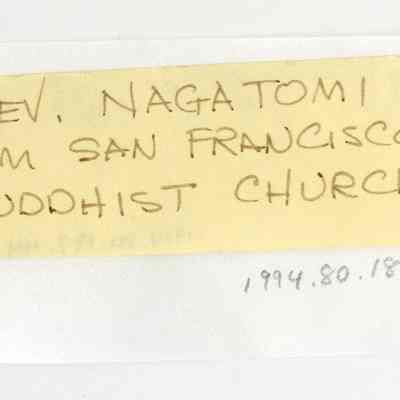 EV. NAGATOMI
M SAN FRANCISCO
UDDHIST CHURCH
1994.80.18